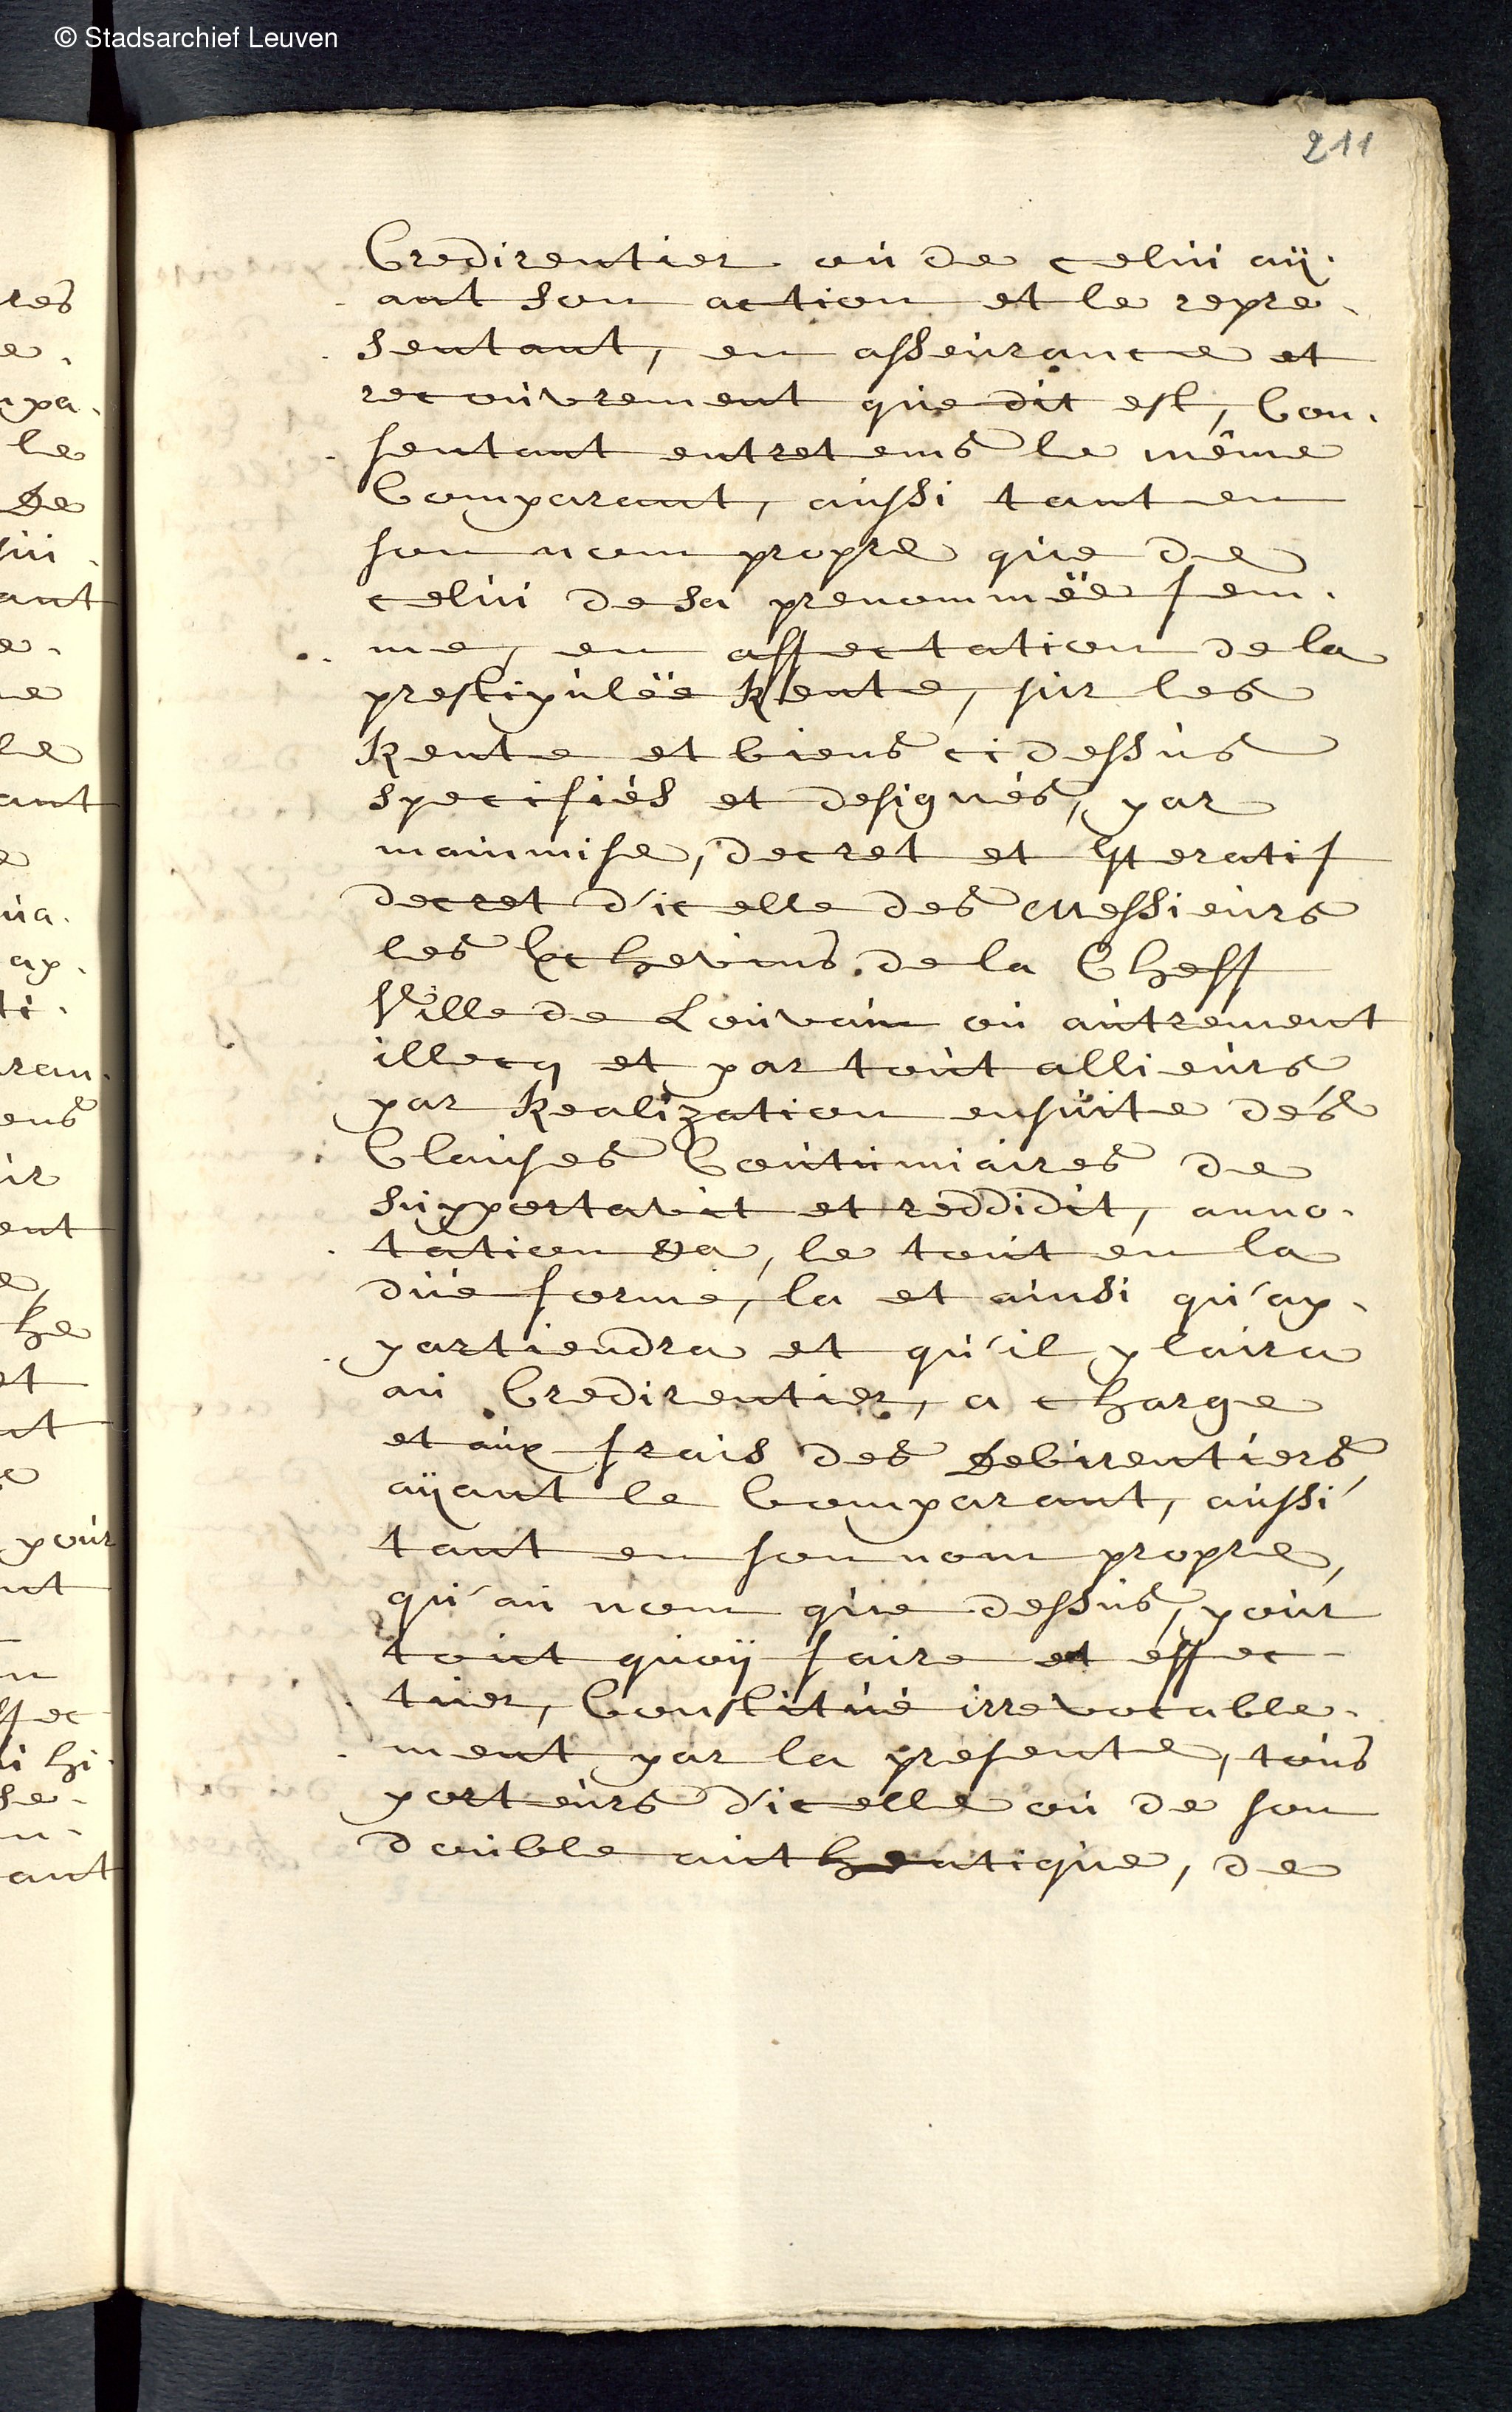 © Stadsarchief Leuven
211
Credirentier ou de celui aÿ.
ant son action et le repre.
sentant, en asseurance et
recouvrement que dit est, Con.
sentant entretems le même
Comparant, aussi tant en
son nom propre que de
celui de sa prenommëe fem.
me, en affectation de la
prestipulëe Rente, sur les
Rente et biens ci dessus
specifiés et designés, par
mainmise, decret et Iteratif
decret d'icelle des Messieurs
les Echevins de la Cheff
Ville de Louvain ou autrement
illecq et par tout allieurs
par Realization ensuite dés
Clauses Coutumiaires de
supportavit et reddidit, anno.
tation &a, le tout en la
düe forme, la et ainsi qu'ap.
partiendra et qu'il plaira
au Credirentier, a charge
et aux frais des Debirentiers
aÿant le Comparant, aussi
tant en son nom propre,
qu'au nom que dessus, pour
tout quoÿ faire et effec-
tuer, Constitué irrevocable.
ment par la presente, tous
porteurs d'icelle ou de son
double authentique, de
res
e.
le
De
ant
e.
ne
le
ant
e
ua.
ap.
ti.
ran.
ens
ir
ent
he
et
nt
pour
nt
ffec
ant